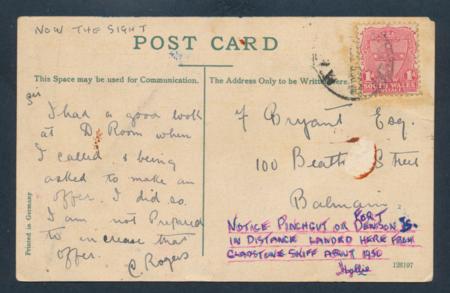 NOW THE SIGHT
POST CARD
This Space may be used for Communication.
The Address Only to be Written Here.
Sir
I had a good look
at D. Room when
I called & being
asked to make an
offer. I did so.
I am not Prepared
to increase that
offer.
C. Rogers
F Bryant Esq.
100 Beattie Street
Balmain.
NOTICE PINCHGUT OR FORT DENISON IS.
IN DISTANCE LANDED HERE FROM
GLADSTONE SKIFF ABOUT 1930
Printed in Germany
128197
1d
SOUTH WALES
1d